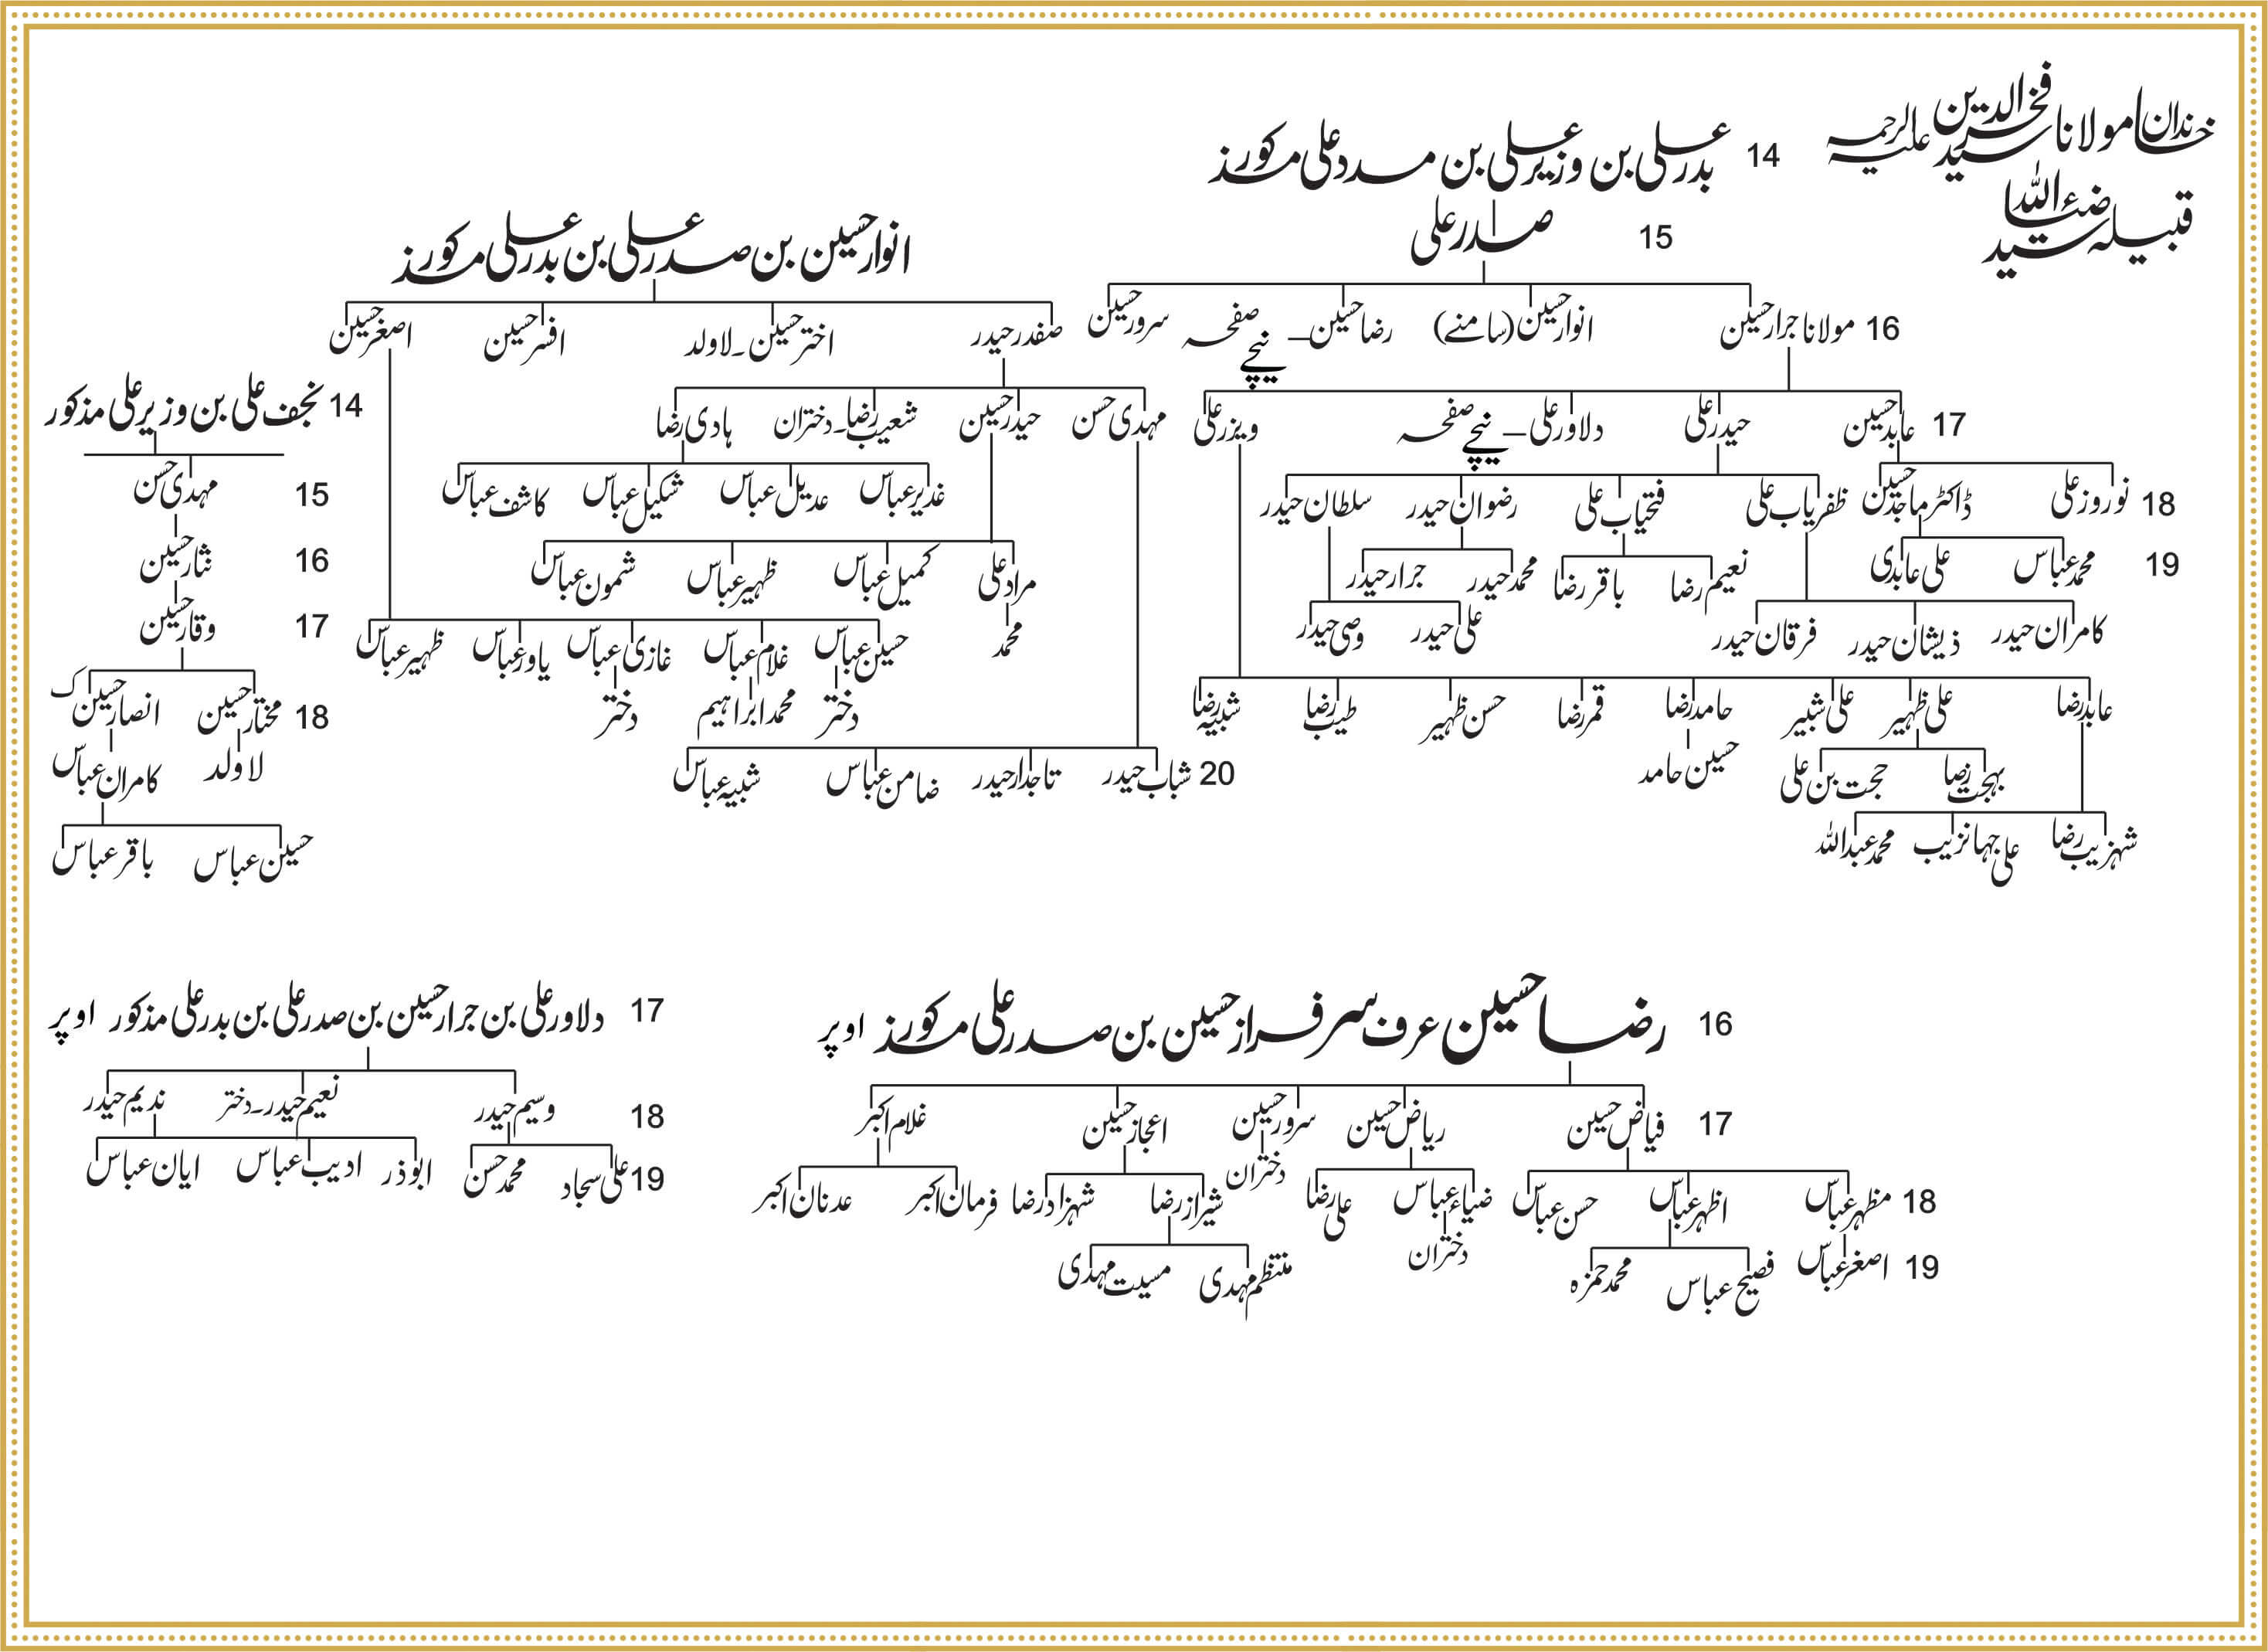 خاندان مولانا سید فخرالدین علیہ الرحمہ
قبیلہ سید ضیاءاللہ
14 بدر علی بن وزیر علی بن مدد علی مذکور
15 صدر علی
16 مولانا جرار حسین انوار حسین (سامنے) رضا حسین – نیچے صفحہ سرور حسین
17 عابد حسین حیدر علی دلاور علی – نیچے صفحہ ویزر علی
18 نوروز علی ڈاکٹر ماجد حسین ظفریاب علی فتحیاب علی رضوان حیدر سلطان حیدر
19 محمد عباس علی عابدی نعیم رضا باقر رضا محمد حیدر جرار حیدر
کامران حیدر ذیشان حیدر فرقان حیدر علی حیدر وصی حیدر
عابد رضا علی ظہیر علی شبیر حامد رضا قمر رضا حسن ظہیر طیب رضا شبیہ رضا
بہجت رضا حجت بن علی حسین حامد
شہزیب رضا علی جہانزیب محمد عبداللہ
انوار حسین بن صدر علی بن بدر علی مذکور
صفدر حیدر اختر حسین۔لاولد افسر حسین اصغر حسین
مہدی حسن حیدر حسین شعیب رضا۔دختران ہادی رضا
غدیر عباس عدیل عباس شکیل عباس کاشف عباس
مراد علی کمیل عباس ظہیر عباس شمون عباس
محمد
حسین عباس غلام عباس غازی عباس یاور عباس ظہیر عباس
دختر محمد ابراہیم دختر
20 شباب حیدر تاجدار حیدر ضامن عباس شبیہ عباس
14 نجف علی بن وزیر علی مذکور
15 مہدی حسن
16 نثار حسین
17 وقار حسین
18 مختار حسین انصار حسین ک
لاولد کامران عباس
حسین عباس باقر عباس
16 رضا حسین عرف سرفراز حسین بن صدر علی مذکور اوپر
17 فیاض حسین ریاض حسین سرور حسین اعجاز حسین غلام اکبر
دختران
18 مظہر عباس اظہر عباس حسن عباس ضیاء عباس علی رضا شیراز رضا شہزاد رضا فرمان اکبر عدنان اکبر
19 اصغر عباس فصیح عباس محمد حمزہ دختران منتظم مہدی مسیت مہدی
17 دلاور علی بن جرار حسین بن صدر علی بن بدر علی مذکور اوپر
18 وسیم حیدر نعیم حیدر۔دختر ندیم حیدر
19 علی سجاد محمد حسن ابوذر ادیب عباس ایان عباس